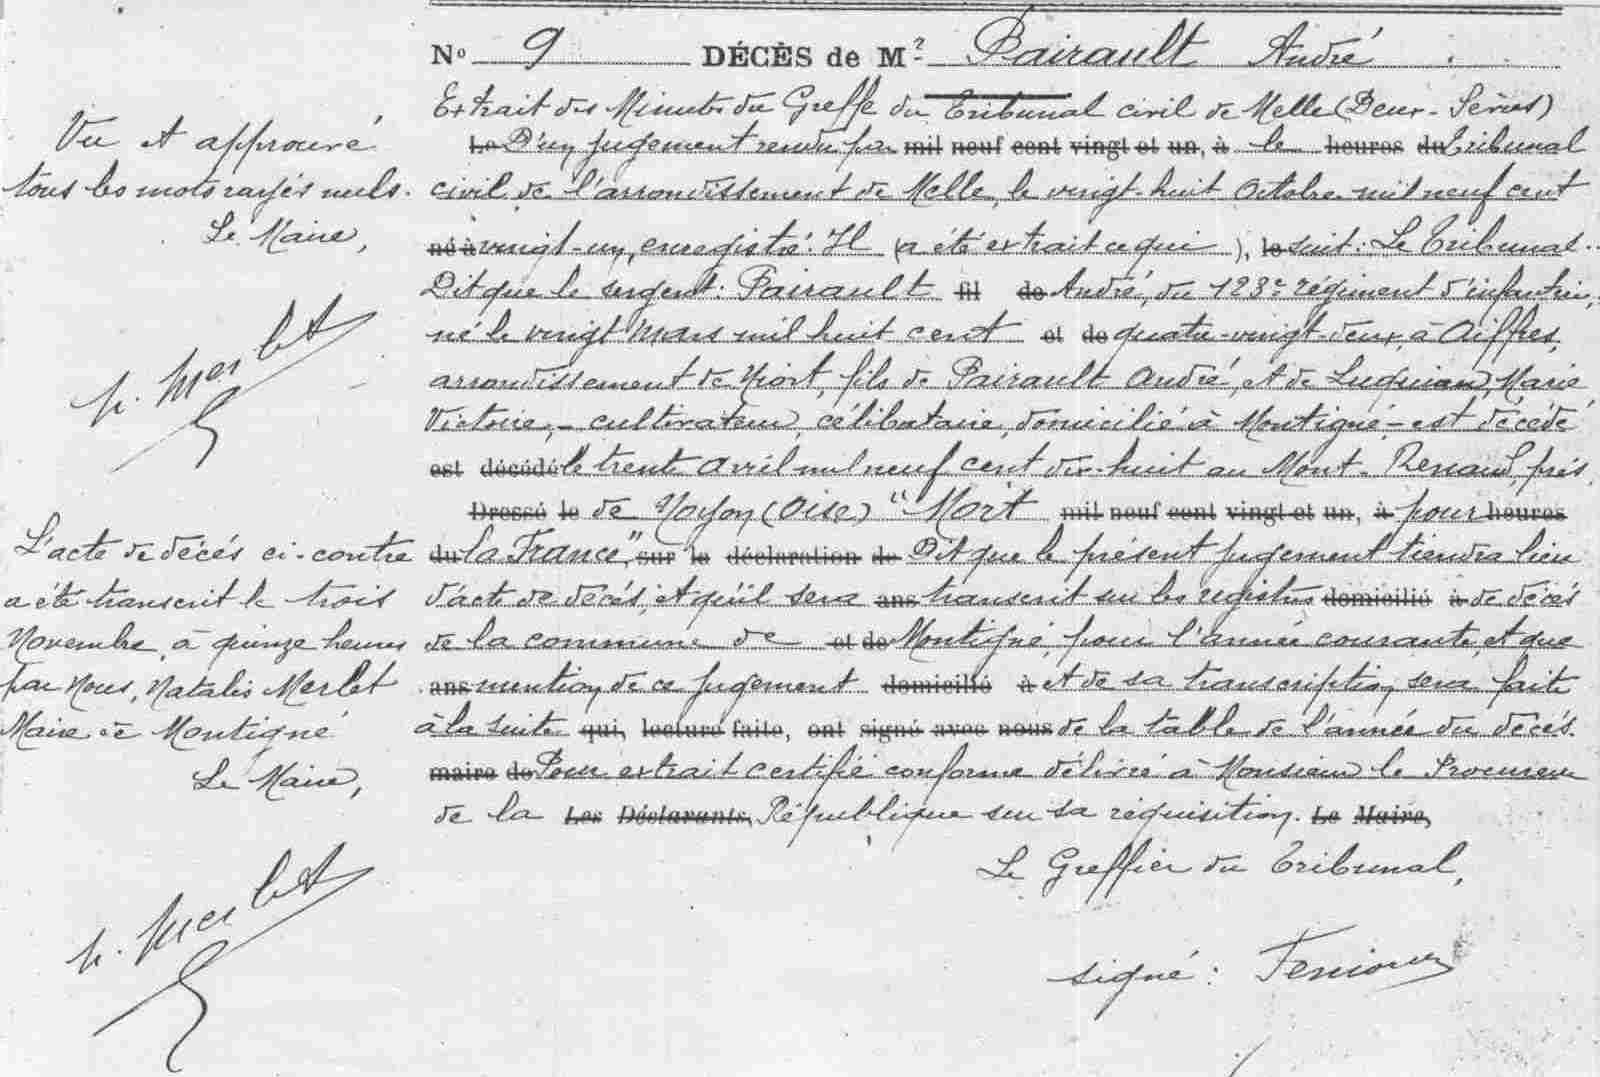 N° 9 DÉCÈS de Mr Pairault André
Extrait des Minutes du Greffe du Tribunal civil de Melle (Deux-Sèvres)
Le D'un jugement rendu par mil neuf cent vingt et un, à le heures du Tribunal
civil de l'arrondissement de Melle, le vingt-huit Octobre mil neuf cent
né à vingt-un, enregistré. Il (a été extrait ce qui ), le suit : Le Tribunal
Dit que le sergent : Pairault fil de André, du 123e régiment d'infanterie,
né le vingt mars mil huit cent et de quatre-vingt-deux, à Aiffres,
arrondissement de Niort, fils de Pairault André, et de Marie
Victoire, - cultivateur, célibataire, domicilié à Montigné, - est décédé
est décédé le trente avril mil neuf cent dix-huit au Mont-Renaud, près,
Dressé le de Noyon (Oise) "Mort mil neuf cent vingt et un, à pour heures
du la France", sur la déclaration de Dit que le présent jugement tiendra lieu
d'acte de décès, et qu'il sera ans transcrit sur les registres domicilié à de décès
de la commune de et de Montigné, pour l'année courante, et que
ans mention de ce jugement domicilié à et de sa transcription sera faite
à la suite qui, lecture faite, ont signé avec nous de la table de l'année du décès.
maire de Pour extrait certifié conforme délivré à Monsieur le Procureur
de la Les Déclarants, République sur sa réquisition. Le Maire,
Le Greffier du Tribunal,
signé :
Vu et approuvé
tous les mots rayés nuls.
Le Maire,
n. Merlet
L'acte de décès ci-contre
a été transcrit le trois
Novembre, à quinze heures
par Nous, Natalis Merlet
Maire de Montigné
Le Maire,
n. Merlet